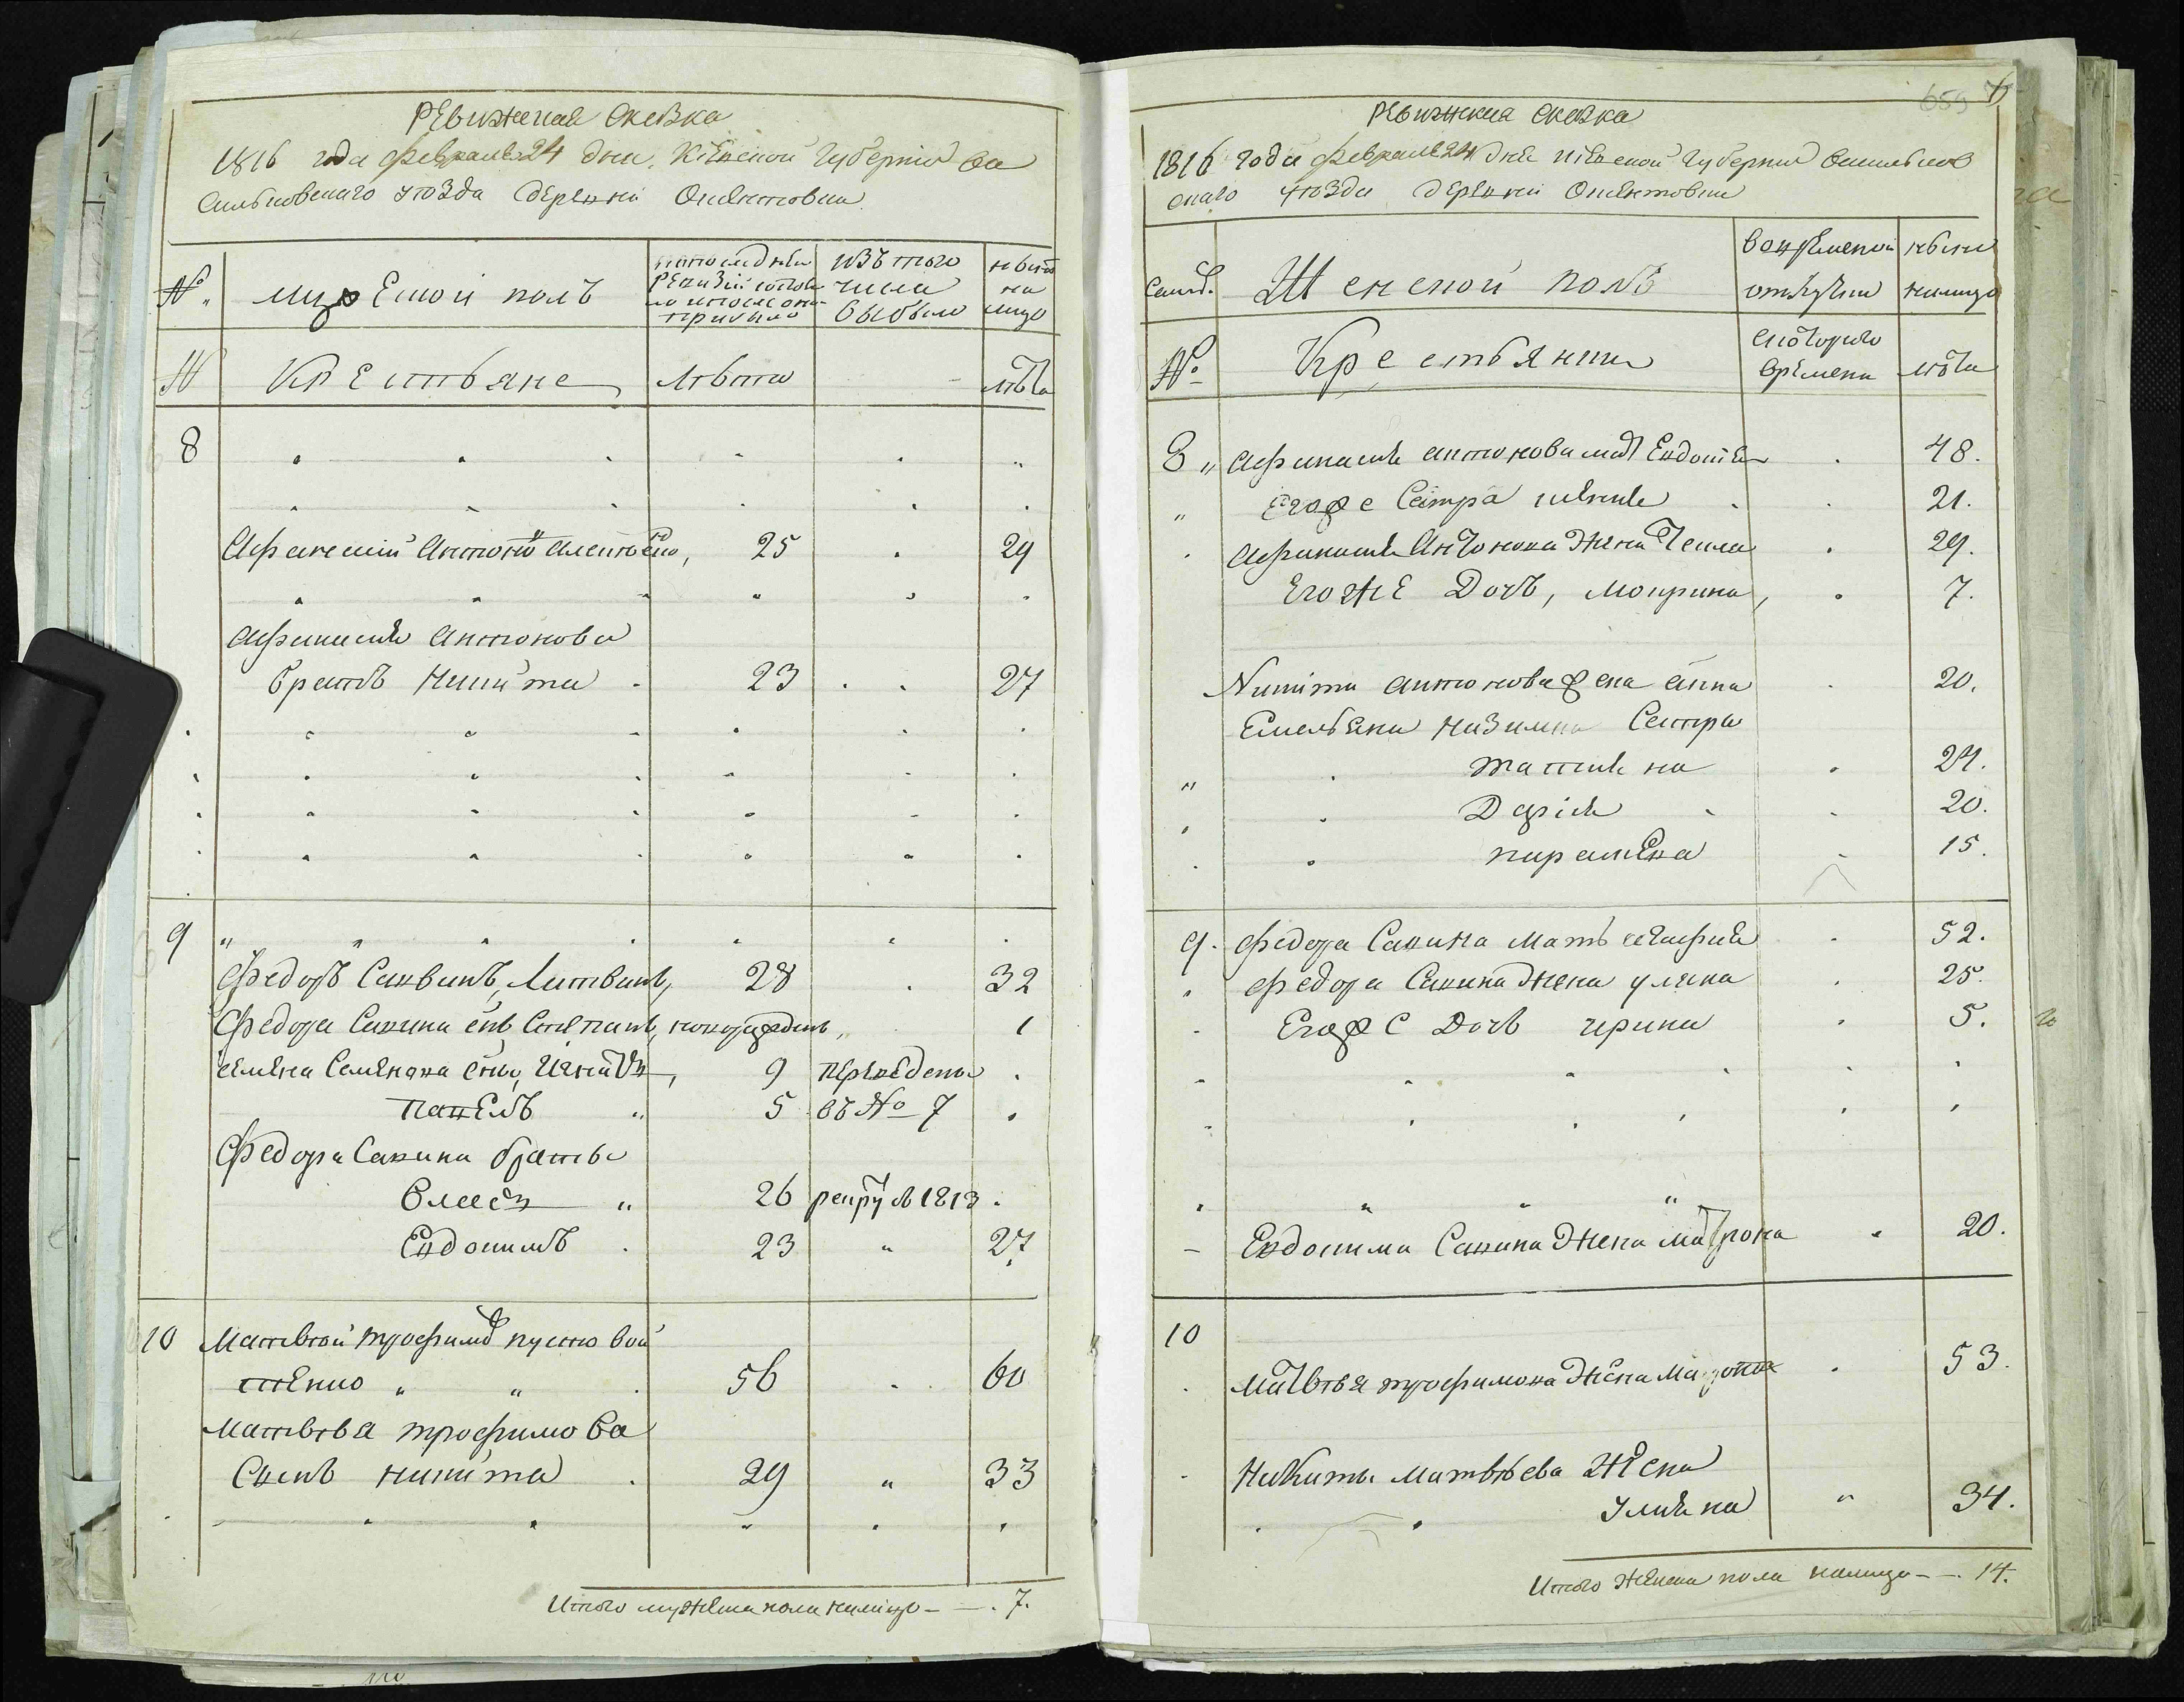 Ревижская Сказка
1816 года февраля 24 дня Кіевской Губерніи Ва
сильковскаго уѣзда деревни
№ мужеской полъ по последней ревизіи состояло и после оной прибыло изъ того числа выбыло ныне на лицо
№ Крестьяне лѣта лѣта
8
Афанасій Антоновъ 25 29
Афанасія Антонова
братъ Никита 23 27
9
Федоръ Саввинъ, Литвинъ, 28 32
Федора Савина снъ Степанъ, новорожденъ, 1
Семена сны, Игнатъ, 9 переведены
Павелъ 5 въ № 7
Федора Савина братья
Власъ 26 рекру в 1813
Евдокимъ 23 27
10 Матвѣй Трофимовъ пусто вой
тенко 56 60
Матвѣя Трофимова
Сынъ Никита 29 33
Итого мужеска пола налицо - 7.
Ревижская Сказка
1816 года февраля 24 дня Кіевской Губерніи Васильков
скаго уѣзда деревни
семей. Женской полъ во временной отлучки ныне налицо
№ Крестьянки с которого времени лѣта
8 Афанасія Антонова мат Евдокія 48.
Его же Сестра 21.
Афанасія Антонова жена Текла 29.
Его же Дочь, Мокрина, 7.
Никиты Антонова жена Анна 20.
Емельяна Сестры
Татіяна 24.
Дарія 20.
Параскева 15.
9. Федора Савина мать 52.
Федора Савина жена Уляна 25.
Его же Дочь Ирина 5.
Евдокима Савина жена Матрона 20.
10
Матвѣя Трофимова жена 53.
Никиты Матвѣева жена
Улияна 34.
Итого женска пола налицо - 14.